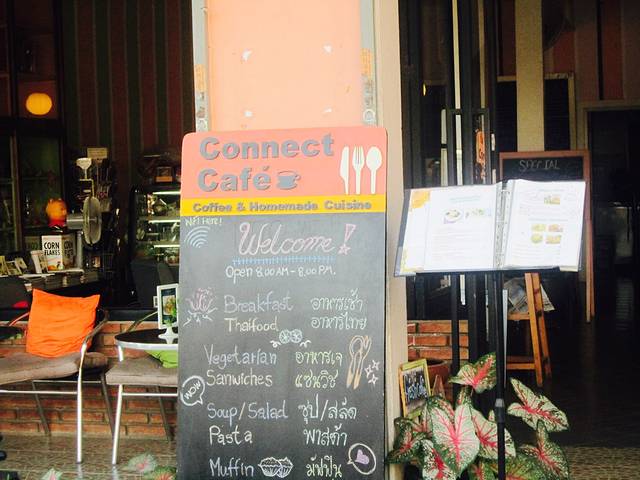 Connect
Café
Coffee & Homemade Cuisine
Welcome!
Open 8.00 AM - 8.00 P.M.
Breakfast อาหารเช้า
Thaifood อาหารไทย
Vegetarian อาหารเจ
Sanwiches แซนวิช
WOW
Soup/Salad ซุป/สลัด
Pasta พาสต้า
Muffin มัฟฟิน
CORN
FLAKES
SPECIAL